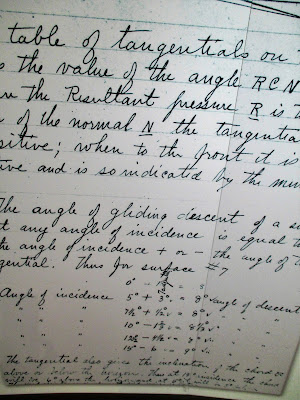 table of tangentials on
the value of the angle R C N
the Resultant pressure R is
of the normal N the tangentia
sitive; when to the front it is
tive and is so indicated by the minu
The angle of gliding descent of a su
at any angle of incidence is equal t
the angle of incidence + or - the angle of t
gential. Thus for surface #7
0° =
Angle of incidence 5° + 3° = 8° angle of descent
" " " 7½° + ½° = 8° " "
" " " 10° - 1½° = 8½° " "
" " "
" " " 15° - 6 = 9° " "
The tangential also gives the inclination of the chord
above or below the horizon. Thus at 5° incidence the chord